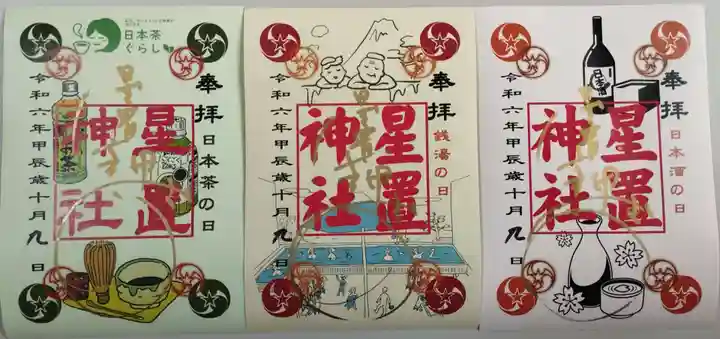 日本茶
ぐらし
奉拝
日本茶の日
星置
神社
令和六年甲辰歳十月九日
奉拝
銭湯の日
星置
神社
令和六年甲辰歳十月九日
日本酒
奉拝
日本酒の日
星置
神社
令和六年甲辰歳十月九日